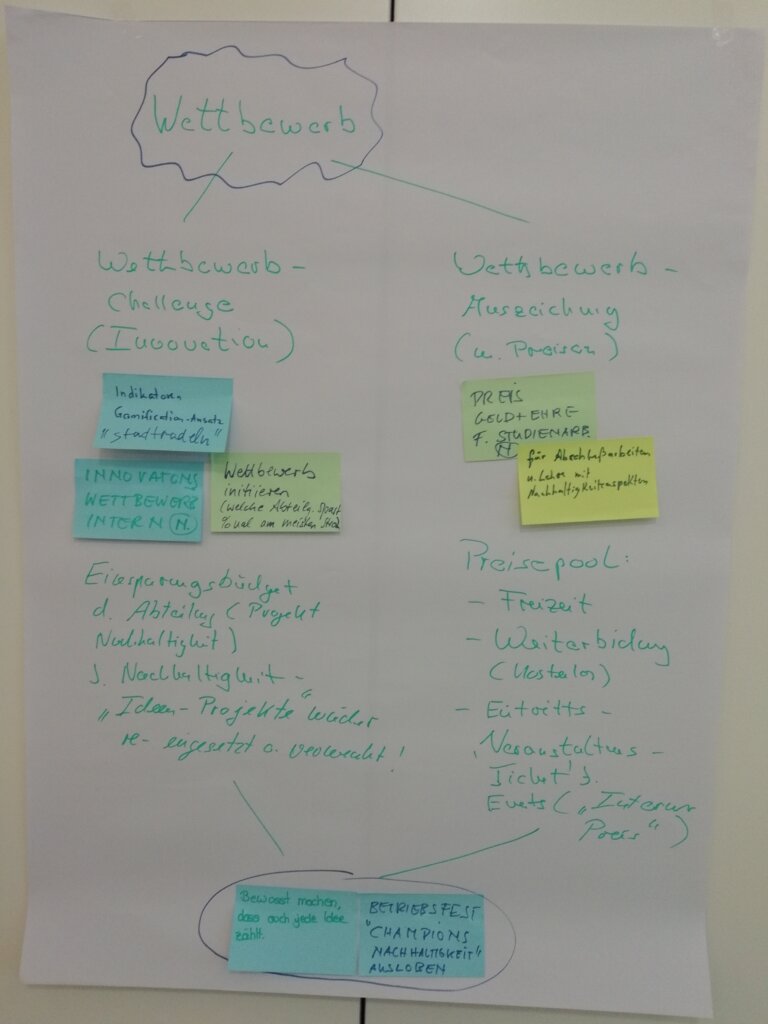 Wettbewerb
Wettbewerb -
Challenge
(Innovation)
Indikatoren
Gamification-Ansatz
"stadtradeln"
INNOVATONS
WETTBEWERB
INTERN N.
Wettbewerb
initiieren
(welche Abteilg. spart
%ual am meisten Strom
Einsparungsbudget
d. Abteilung (Projekt
Nachhaltigkeit)
f. Nachhaltigkeit -
"Ideen-Projekte" wieder
re- eingesetzt o. verwendet!
Wettbewerb -
Auszeichung
(u. Preisen)
PREIS
GELD + EHRE
F. STUDIENARB.
N
für Abschlußarbeiten
u. Lehre mit
Nachhaltigkeitsaspekten
Preisepool:
- Freizeit
- Weiterbildung
(Kostenlos)
- Eintritts -
Veranstaltungs -
Ticket's f.
Events ("Interner
Preis")
Bewusst machen,
dass auch jede Idee
zählt.
BETRIEBSFEST
"CHAMPIONS
NACHHALTIGKEIT"
AUSLOBEN